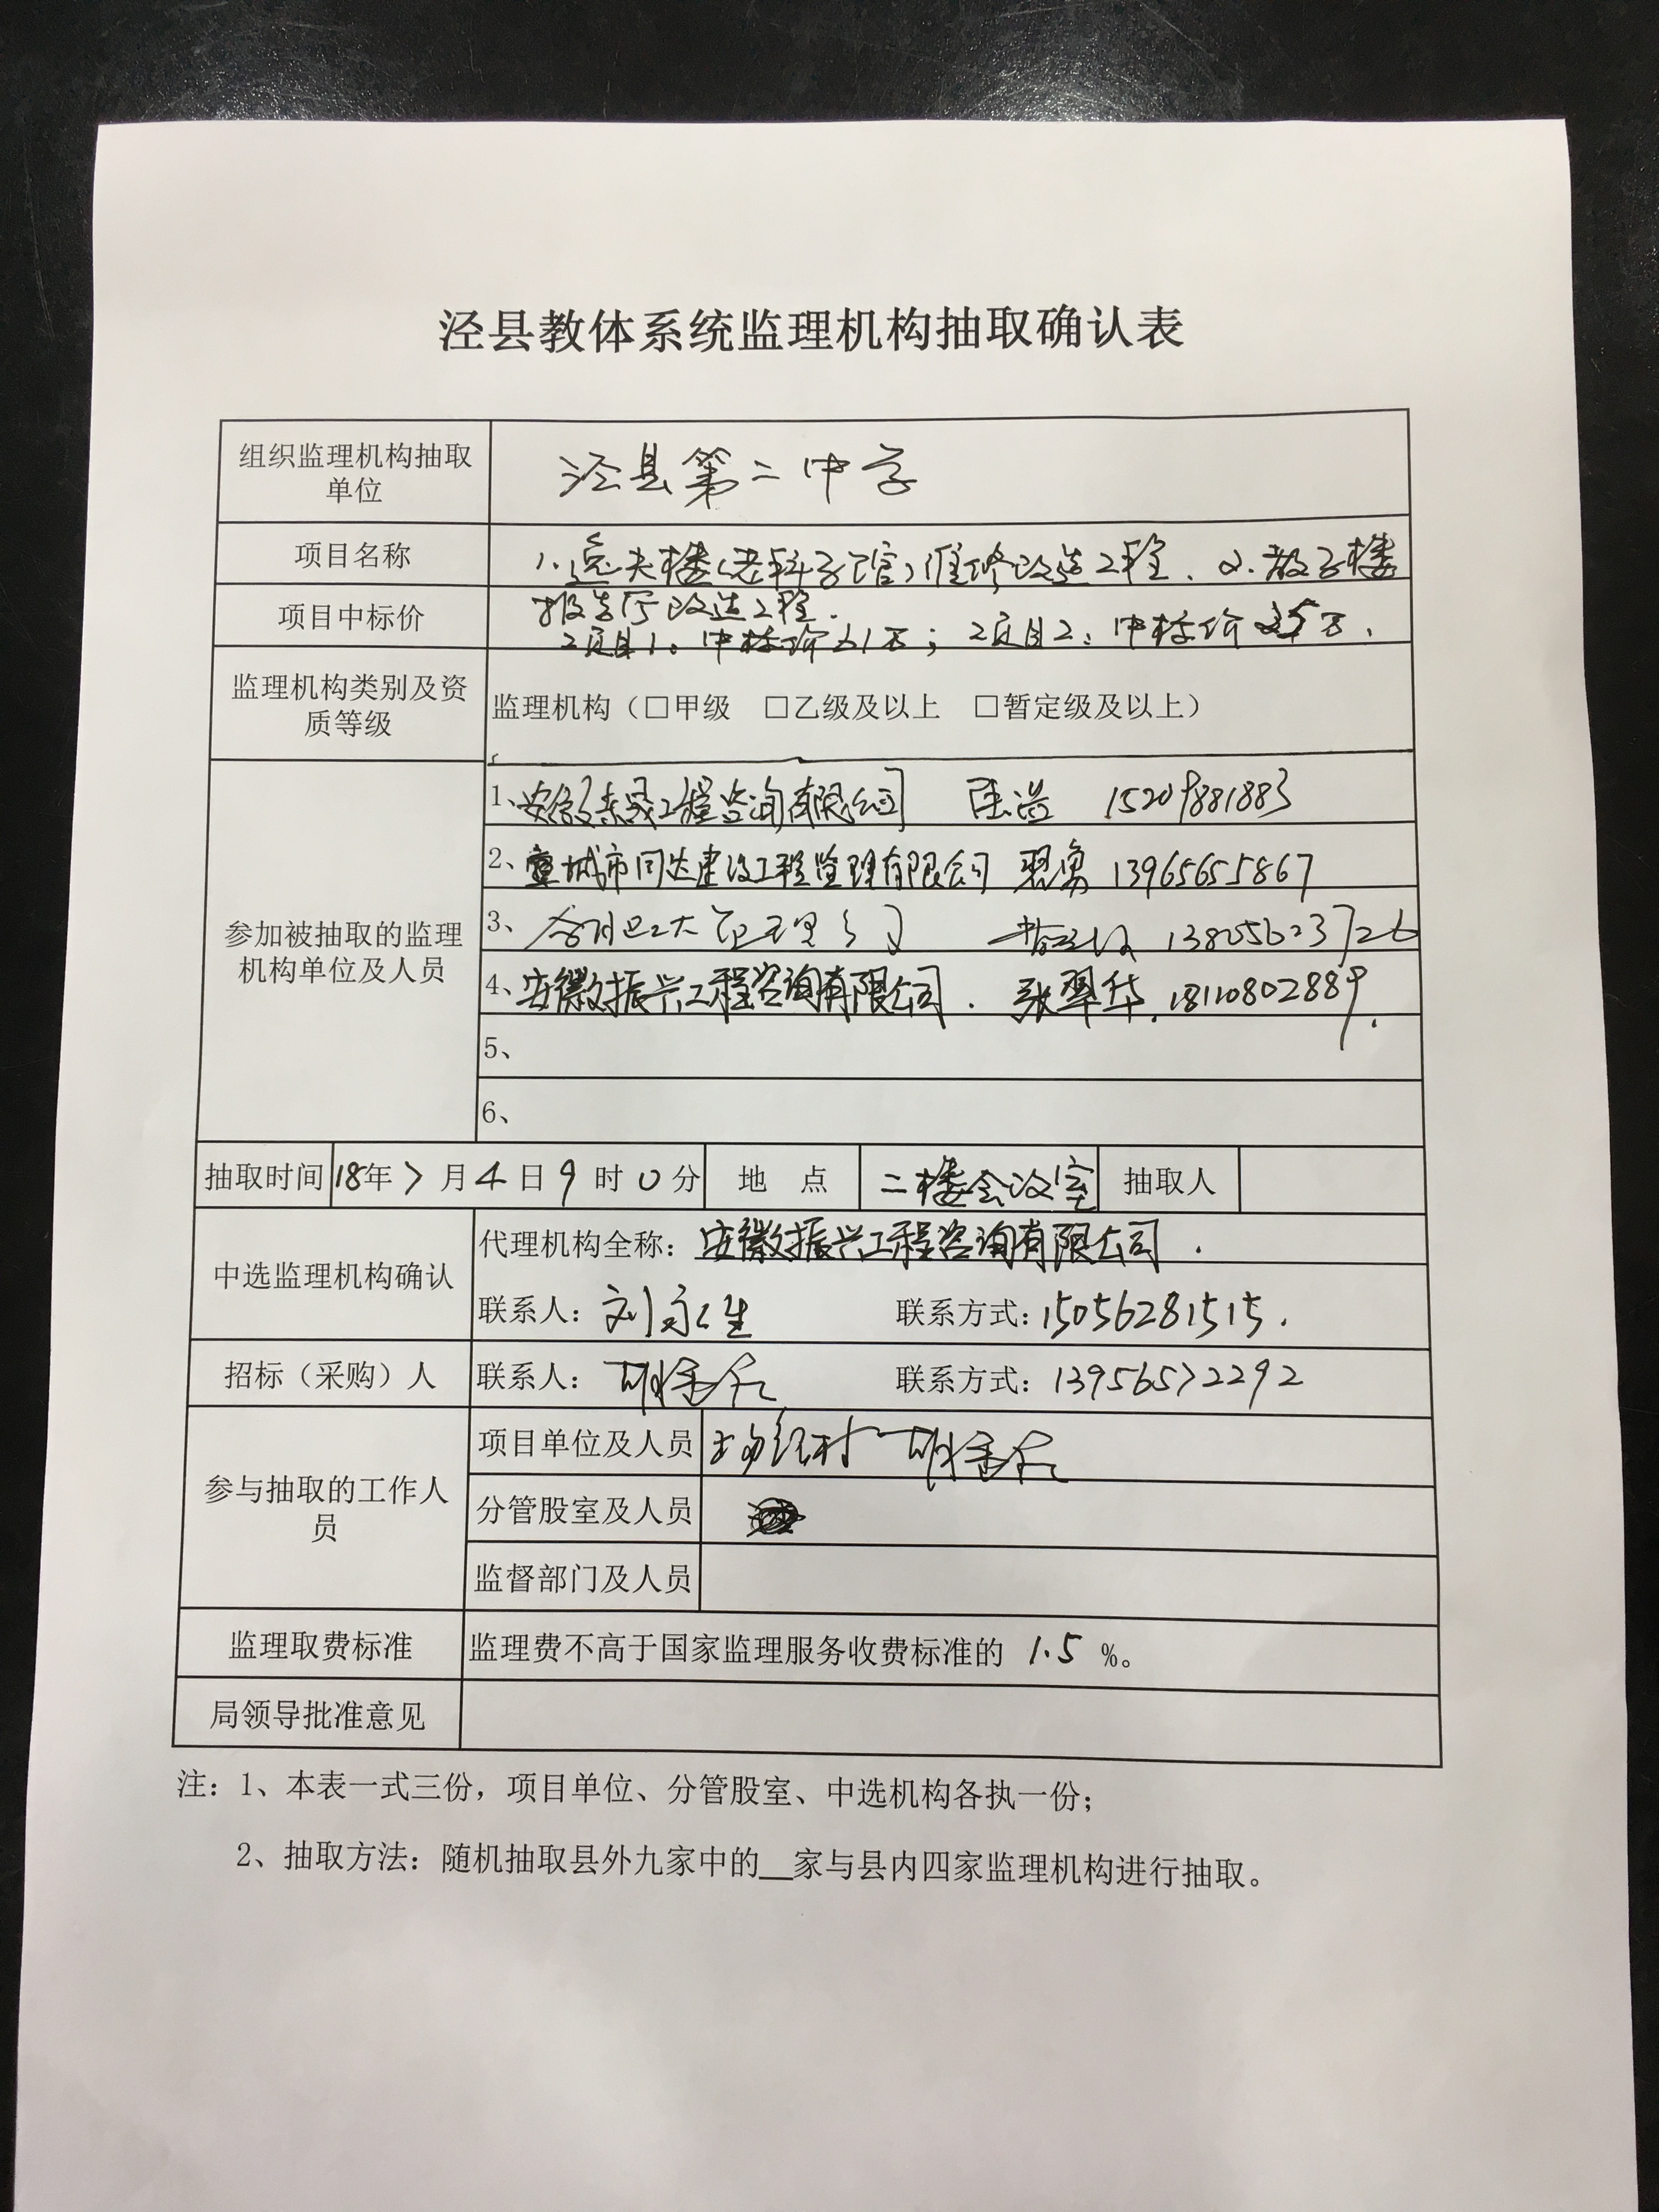 泾县教体系统监理机构抽取确认表
组织监理机构抽取
单位
泾县第二中学
项目名称
1.逸夫楼(老科学馆)维修改造工程、2.教学楼
报告厅改造工程.
项目中标价
项目1:中标价61万;项目2:中标价35万.
监理机构类别及资
质等级
监理机构（□甲级 □乙级及以上 □暂定级及以上）
参加被抽取的监理
机构单位及人员
1、安徽 工程咨询有限公司 15209881883
2、宣城市同达建设工程监理有限公司 勇 13965655867
3、合肥工大监理公司 13805623726
4、安徽振兴工程咨询有限公司. 张翠华.18110802889.
5、
6、
抽取时间 18年7月4日9时0分 地 点 二楼会议室 抽取人
中选监理机构确认
代理机构全称：安徽振兴工程咨询有限公司.
联系人：刘永生 联系方式：15056281515.
招标（采购）人 联系人：胡 联系方式：13956572292
参与抽取的工作人
员
项目单位及人员 胡
分管股室及人员
监督部门及人员
监理取费标准 监理费不高于国家监理服务收费标准的 1.5 %。
局领导批准意见
注：1、本表一式三份，项目单位、分管股室、中选机构各执一份；
2、抽取方法：随机抽取县外九家中的__家与县内四家监理机构进行抽取。